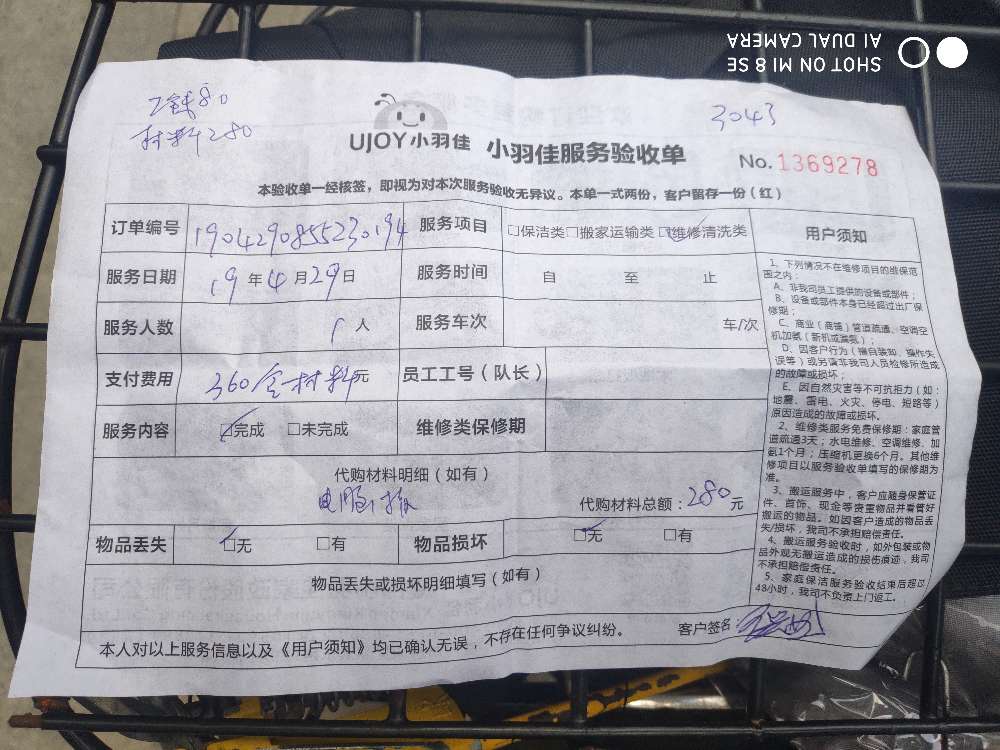 SHOT ON MI 8 SE
AI DUAL CAMERA
工钱80
材料280
3043
UJOY小羽佳 小羽佳服务验收单
No. 1369278
本验收单一经核签，即视为对本次服务验收无异议。本单一式两份，客户留存一份（红）
订单编号 1904290855230194 服务项目 □保洁类□搬家运输类□维修清洗类
服务日期 19年4月29日 服务时间 自 至 止
服务人数 1人 服务车次 车/次
支付费用 360含材料元 员工工号（队长）
服务内容 □完成 □未完成 维修类保修期
代购材料明细（如有）
电脑板 代购材料总额：280元
物品丢失 □无 □有 物品损坏 □无 □有
物品丢失或损坏明细填写（如有）
本人对以上服务信息以及《用户须知》均已确认无误，不存在任何争议纠纷。 客户签名：
用户须知
1、下列情况不在维修项目的维保范
围之内：
A、非我司员工提供的设备或部件；
B、设备或部件本身已经超过出厂保
修期；
C、商业（商铺）管道疏通、空调空
机加氨（新机或漏氨）；
D、因客户行为（擅自装卸、操作失
误等）或另请非我司人员检修所造成
的故障或损坏；
E、因自然灾害等不可抗拒力（如：
地震、雷电、火灾、停电、短路等）
原因造成的故障或损坏。
2、维修类服务免费保修期：家庭管
道疏通3天；水电维修、空调维修、加
氨1个月；压缩机更换6个月。其他维
修项目以服务验收单填写的保修期为
准。
3、搬运服务中，客户应随身保管证
件、首饰、现金等贵重物品并看管好
搬运的物品。如因客户造成的物品丢
失/损坏，我司不承担赔偿责任。
4、搬运服务验收时，如外包装或物
品外观无搬运造成的损伤痕迹，我司
不承担赔偿责任。
5、家庭保洁服务验收结束后超过
48小时，我司不负责上门返工。